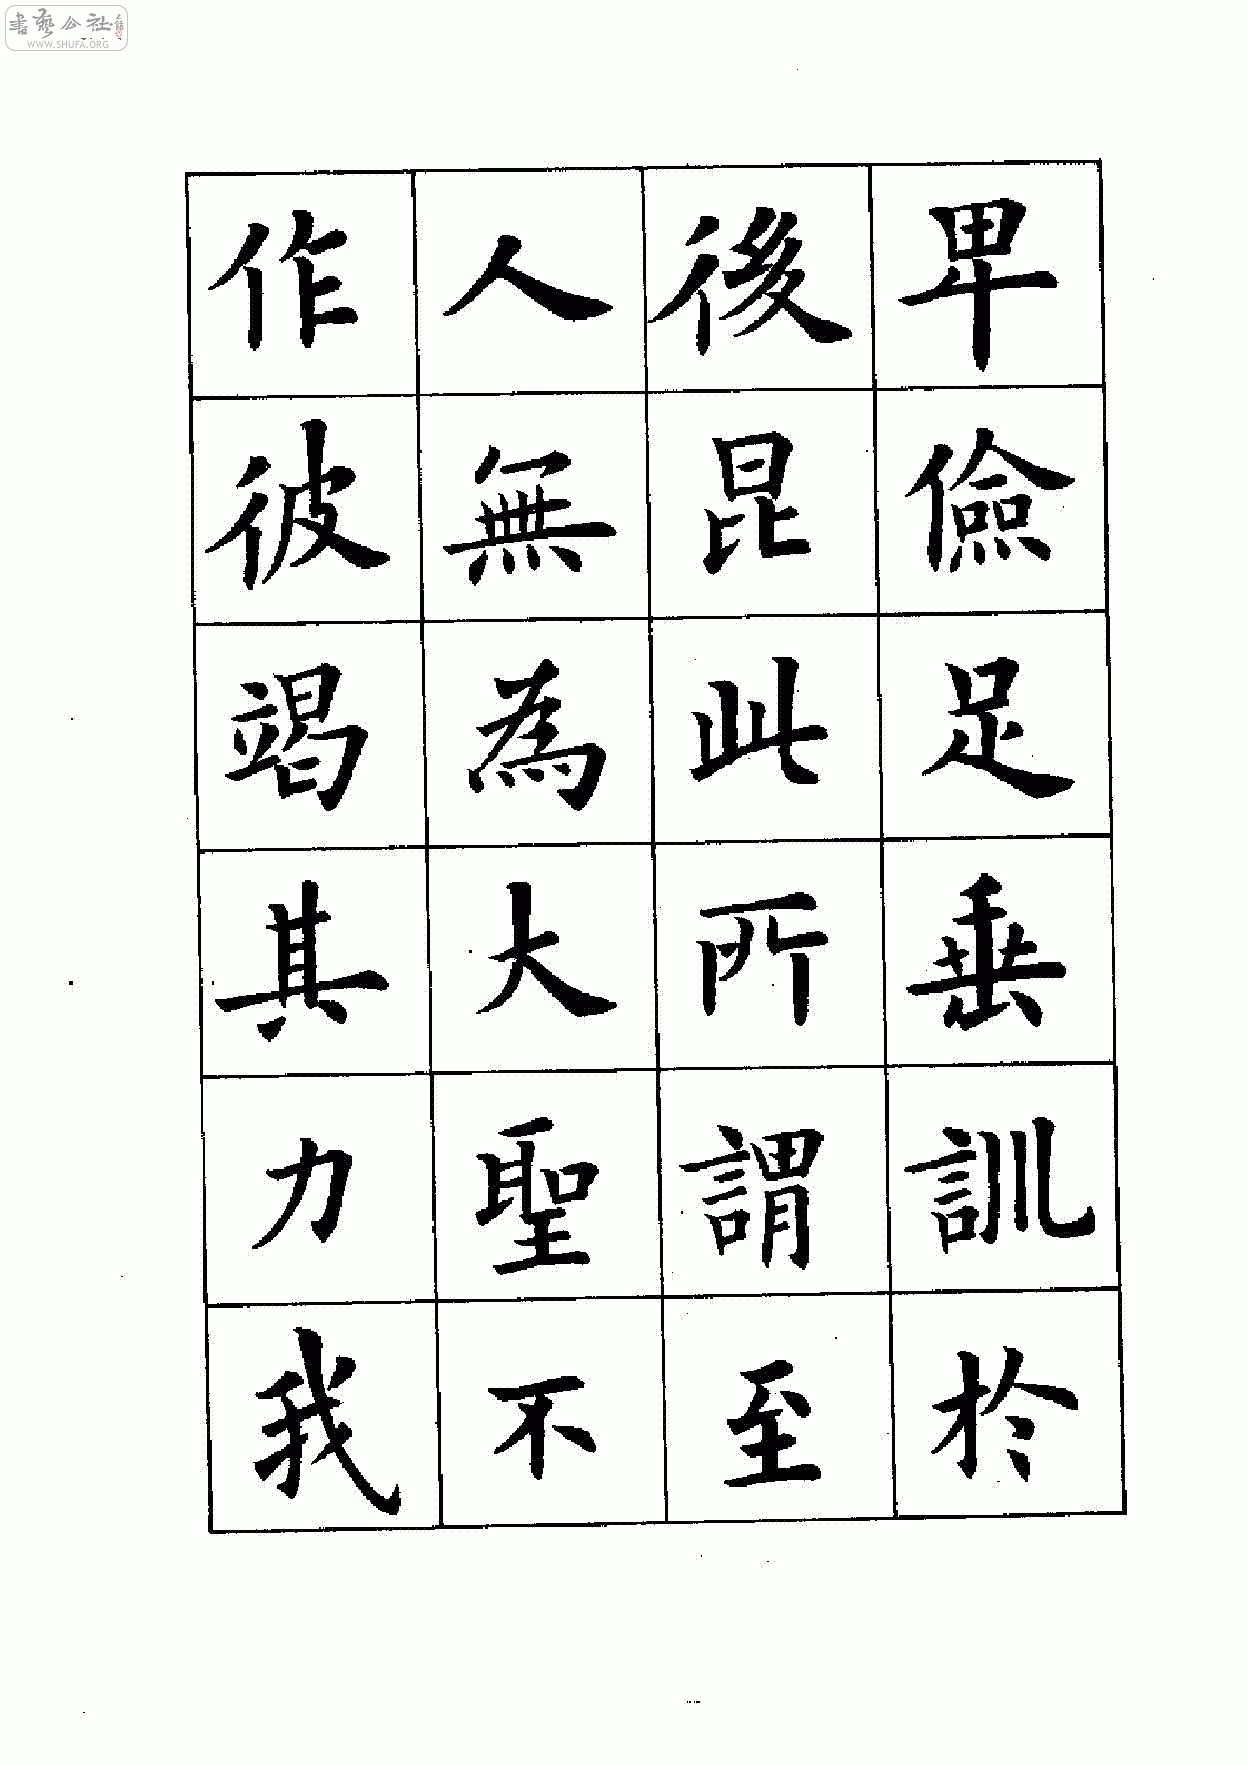 書藝公社
WWW.SHUFA.ORG
卑儉足垂訓於
後昆此所謂至
人無為大聖不
作彼竭其力我